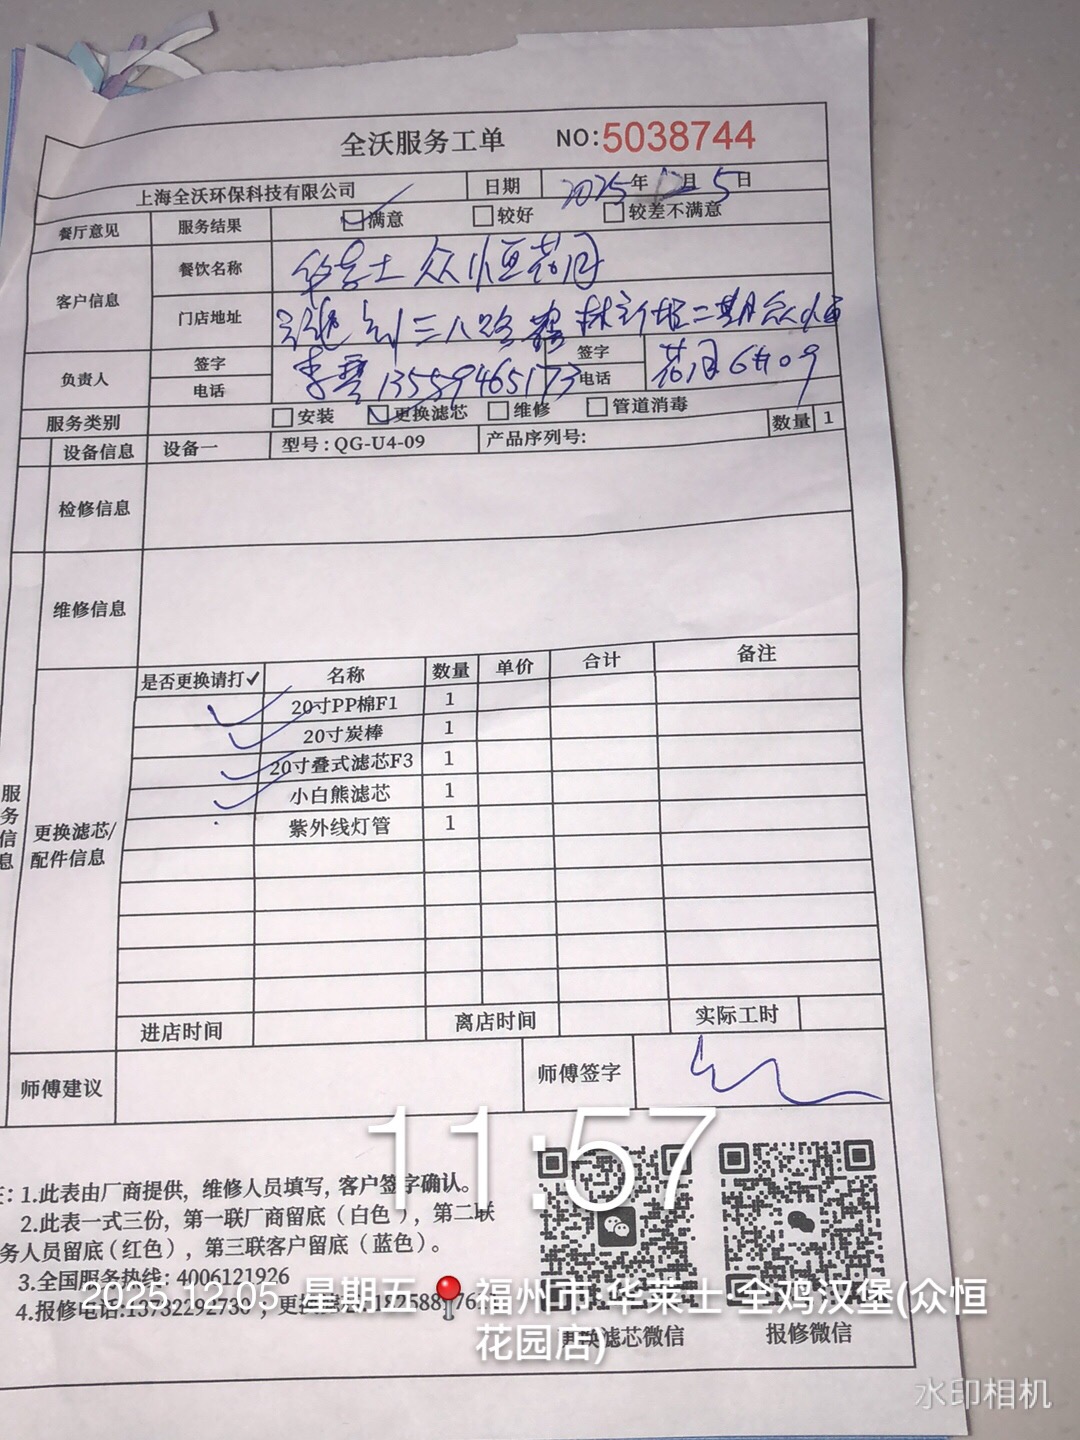 全沃服务工单 NO:5038744
上海全沃环保科技有限公司 日期 2025年12月5日
餐厅意见 服务结果 满意 较好 较差不满意
客户信息 餐饮名称 华莱士众恒花园
门店地址 三八路 二期众恒
花园6#09
负责人 签字 签字
电话 13559465173 电话
服务类别 安装 更换滤芯 维修 管道消毒
设备信息 设备一 型号:QG-U4-09 产品序列号: 数量 1
检修信息
维修信息
服务信息
更换滤芯/配件信息
是否更换请打✓ 名称 数量 单价 合计 备注
✓ 20寸PP棉F1 1
✓ 20寸炭棒 1
✓ 20寸叠式滤芯F3 1
✓ 小白熊滤芯 1
紫外线灯管 1
进店时间 离店时间 实际工时
师傅建议 师傅签字
11:57
:1.此表由厂商提供,维修人员填写,客户签字确认。
2.此表一式三份,第一联厂商留底(白色),第二联
务人员留底(红色),第三联客户留底(蓝色)。
3.全国服务热线:4006121926
4.报修电话:13732292730;
更换滤芯微信 报修微信
2025.12.05 星期五 福州市·华莱士·全鸡汉堡(众恒
花园店)
水印相机